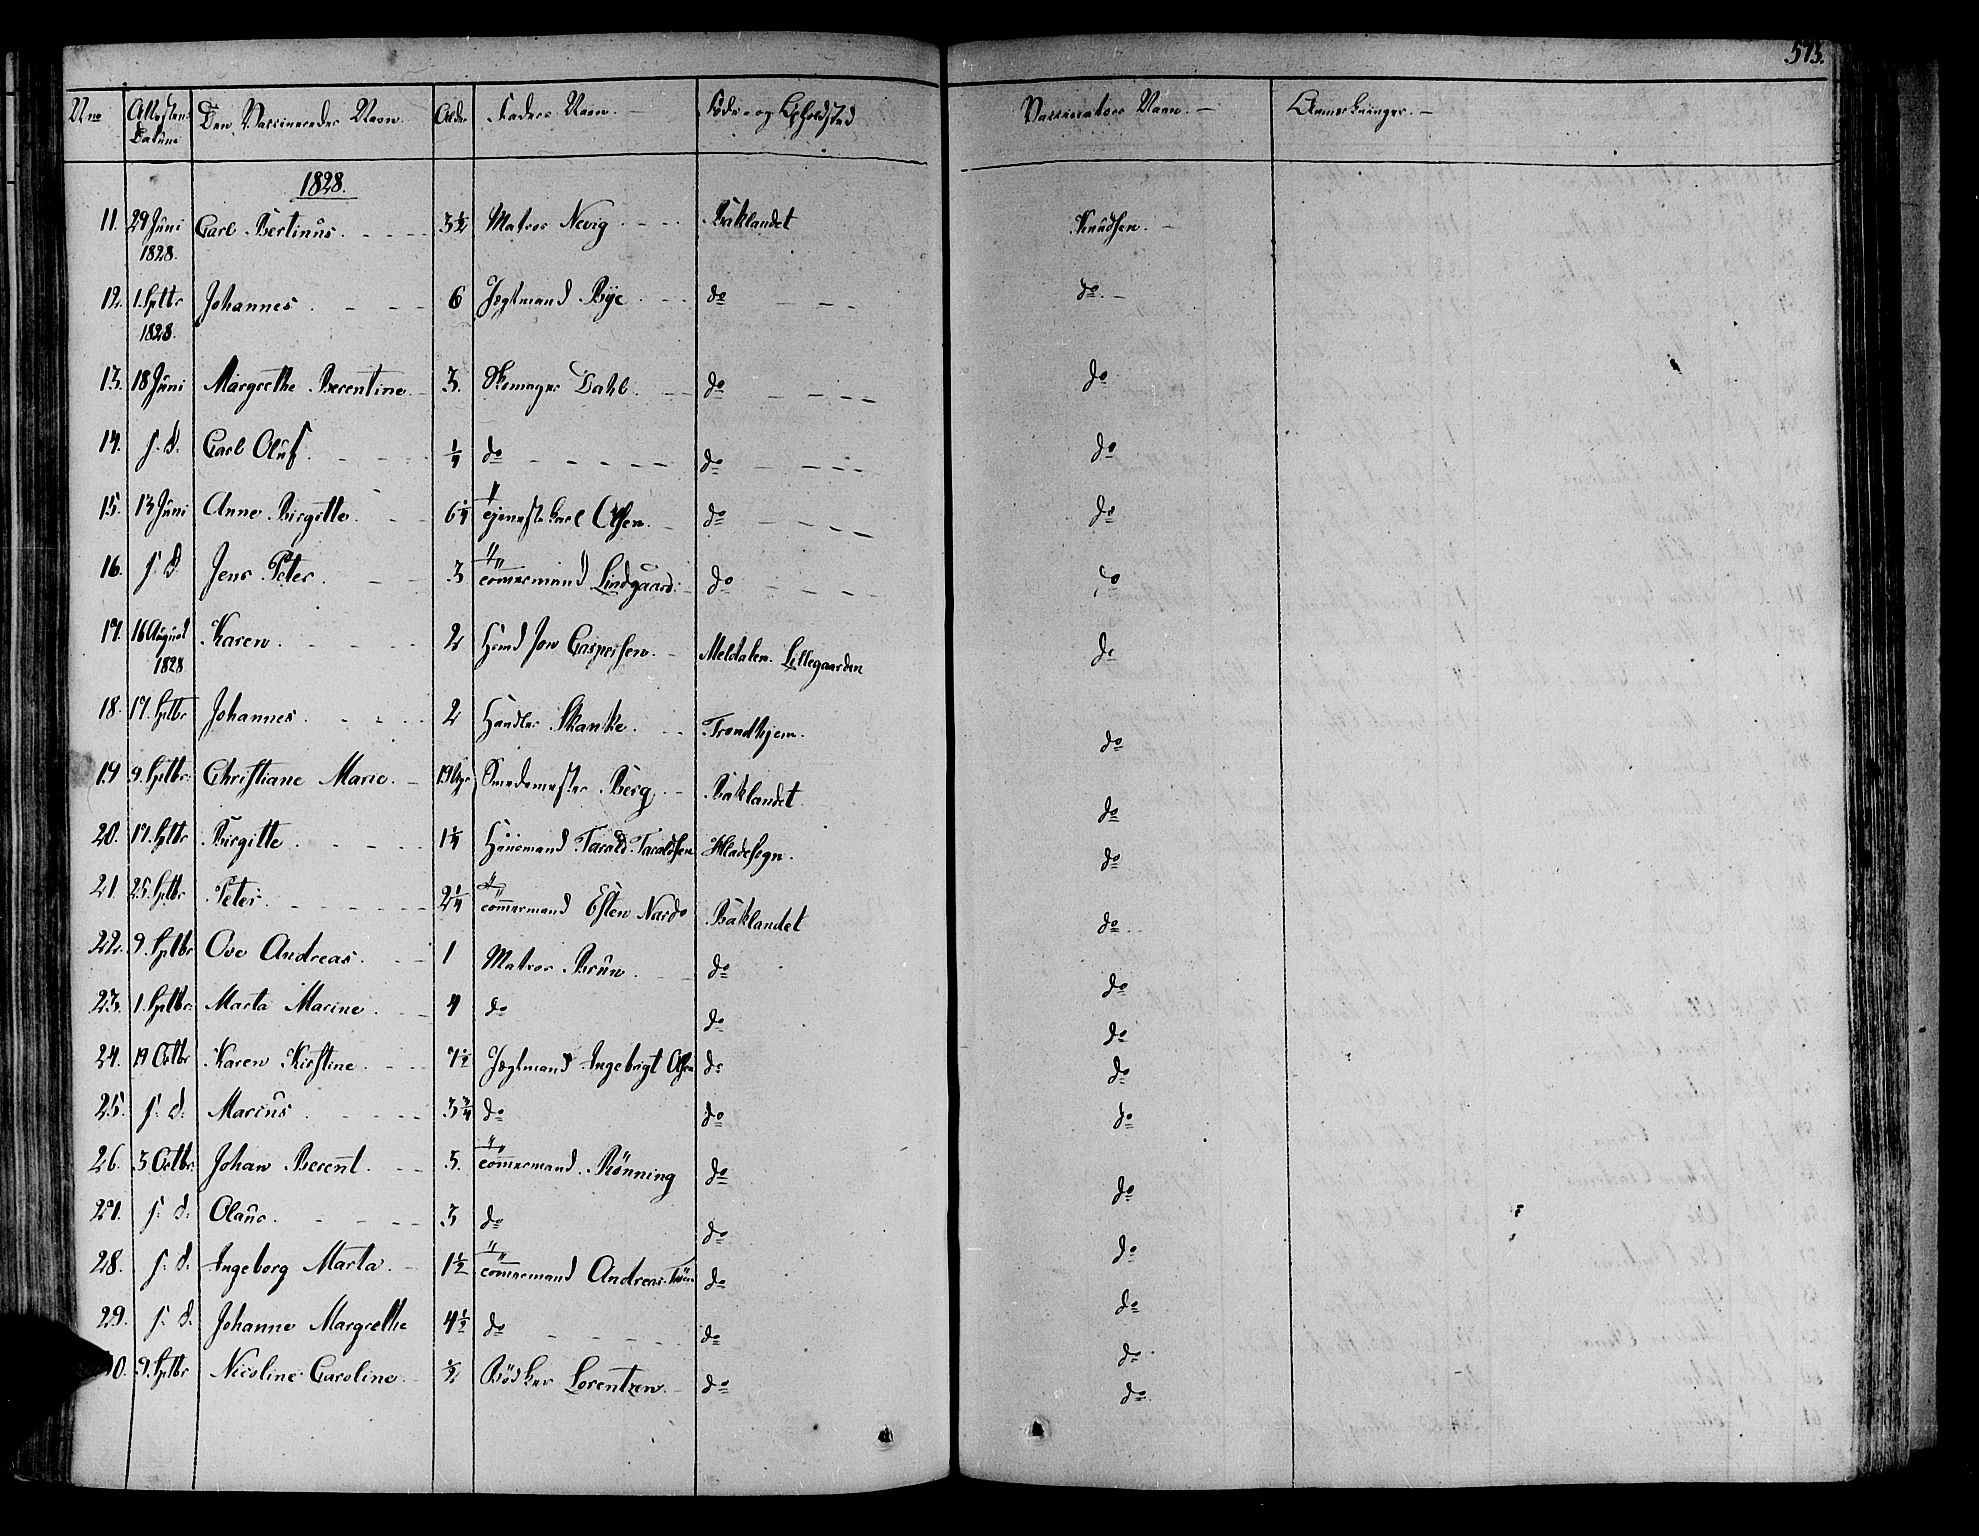 573.
No Attestens Datum Den Vaccineredes Navn. Alder Faders Navn. Føde- og Opholdsted Vaccinateurs Navn. Anmærkninger.
1828.
11. 29 Juni 1828. Carl Bertinus. 3½ Matros Nevig Baklandet Knudsen.
12. 1. Sptbr 1828. Johannes. 6 Jægtmand Bye do do.
13. 18 Juni Margrethe Berentine 3. Skomager Dahl. do do
14. s. d. Carl Oluf. ¼ do do do
15. 13 Juni Anne Birgitte. 6¼ Olsen. do do
16. s. d. Jens Peter. 3 Tømmermand Lindgaard. do do
17. 16 August 1828 Karen. 2 Jon Caspersen. Meldalen. Lillegaarden do
18. 17. Sptbr Johannes. 2 Handler Skanke. Trondhjem. do
19 9. Sptbr. Christiane Marie. 19 Smedemester Berg. Baklandet do
20. 17. Sptbr Birgitte. 1¼ Huusmand Tarald Taraldsen Hladesogn. do
21. 25. Sptbr Peter. 2¼ Tømmermand Esten Nardo Baklandet do.
22. 9. Sptbr Ove Andreas. 1 Matros Bruun. do do
23. 1. Sptbr. Marta Marine. 4 do do do
24. 19 Octbr Karen Kirstine. 7½ Jægtmand Ingebrigt Olsen do do
25. s. d. Marius. 3¾ do do do
26. 3 Octbr. Johan Berent. 5. Tømmermand Rønning do do
27. s. d. Olaus. 3 do do do
28. s. d. Ingeborg Marta. 1½ Tømmermand Andreas do do
29. s. d. Johanne Margrethe 4½ do do do
30. 9. Sptbr Nicoline Caroline. ½ Bødker Lorentzen. do do
do